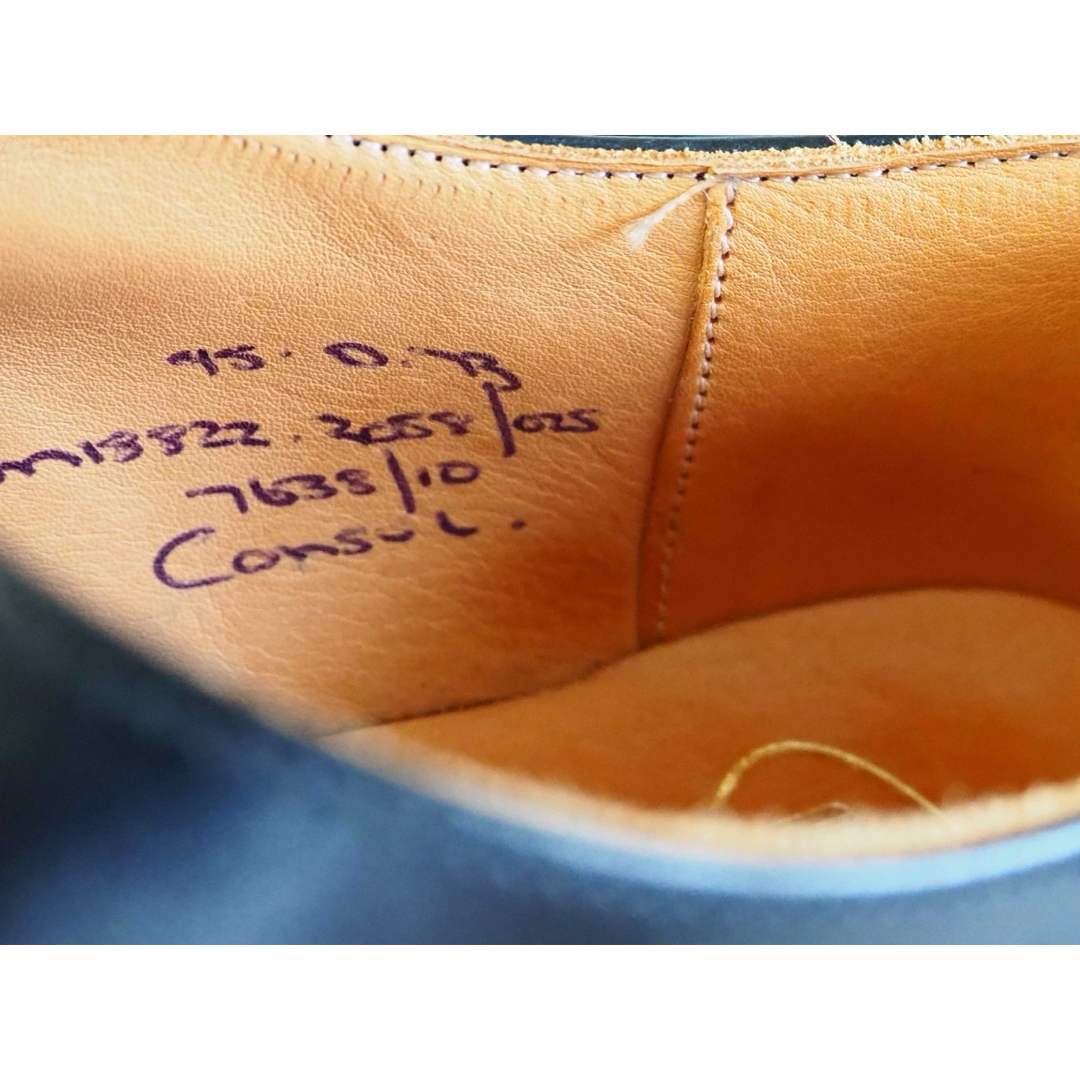 95. D. 73
m18822. 2058/025
7638/10
Consul.